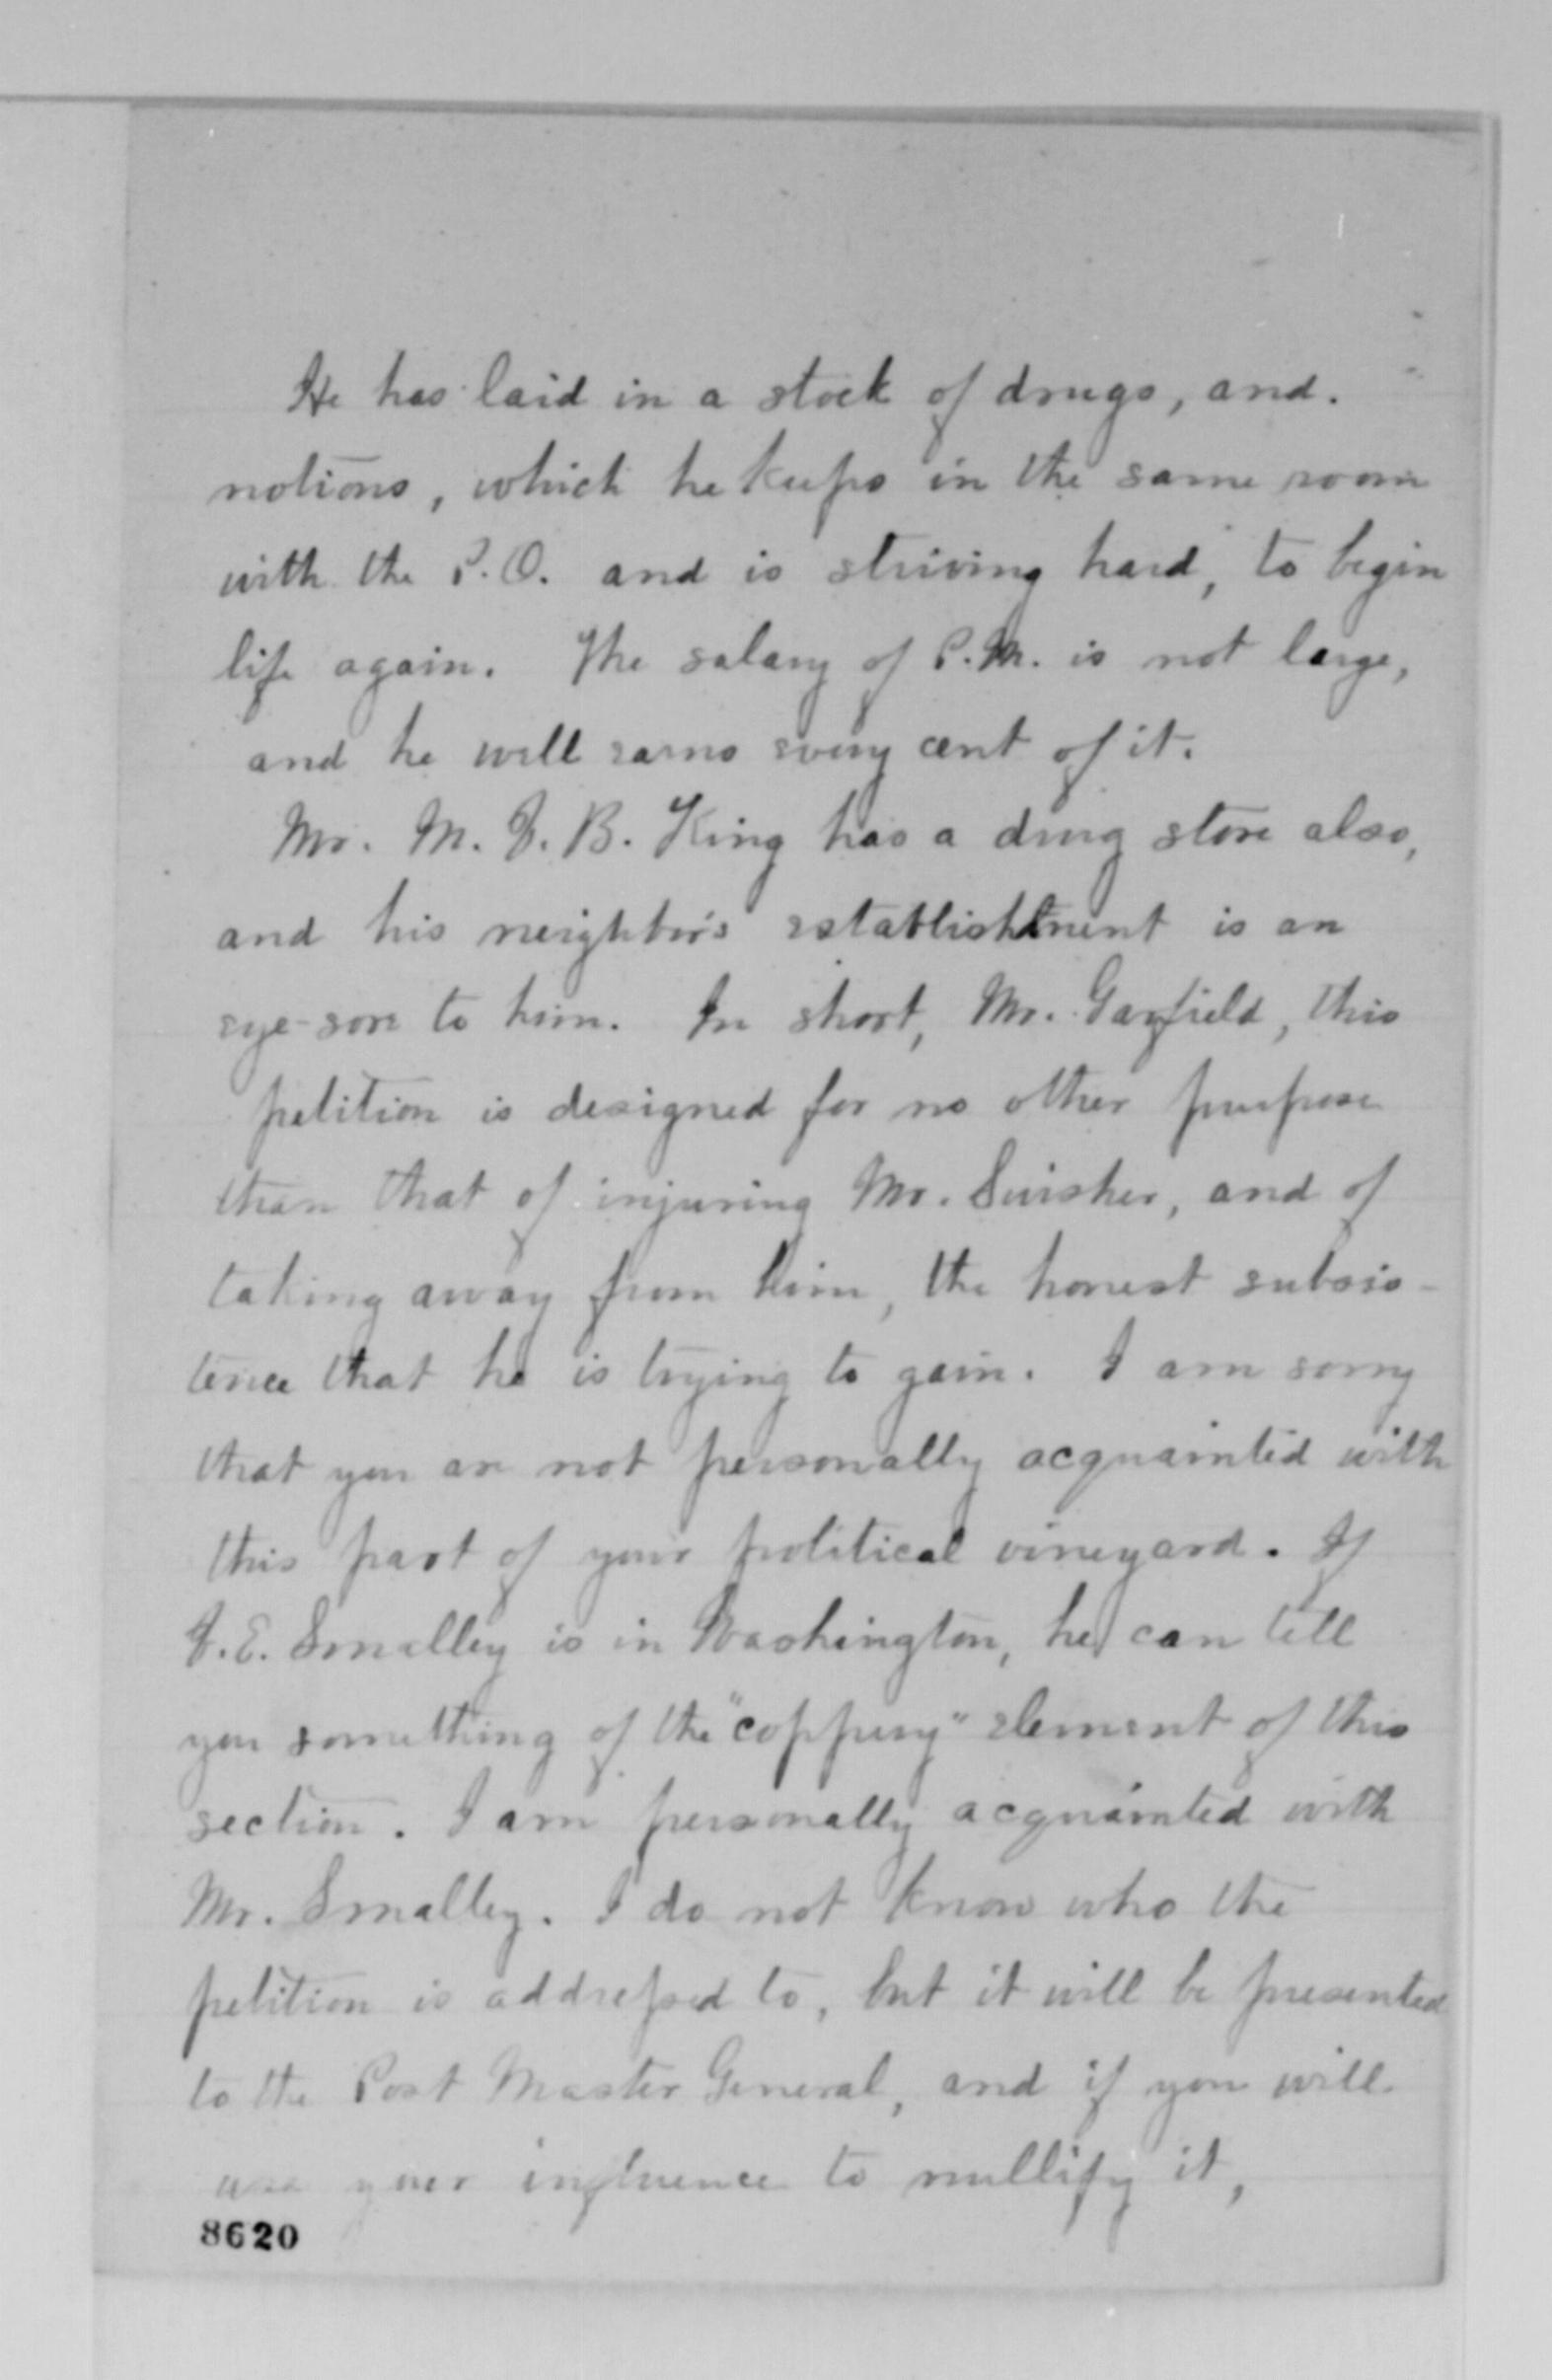 He has laid in a stock of drugs, and.
notions, which he keeps in the same room
with the P.O. and is striving hard, to begin
life again. The salary of P.M. is not large,
and he will earns every cent of it.
Mr. M. J. B. King has a drug store also,
and his neighbor's establishment is an
eye-sore to him. In short, Mr. Garfield, this
petition is designed for no other purpose
than that of injuring Mr. Swisher, and of
taking away from him, the honest subsis-
tence that he is trying to gain. I am sorry
that you are not personally acquainted with
this part of your political vineyard. If
J. E. Smalley is in Washington, he can tell
you something of the "coppery" element of this
section. I am personally acquainted with
Mr. Smalley. I do not know who the
petition is addressed to, but it will be presented
to the Post Master General, and if you will
use your influence to nullify it,
8620